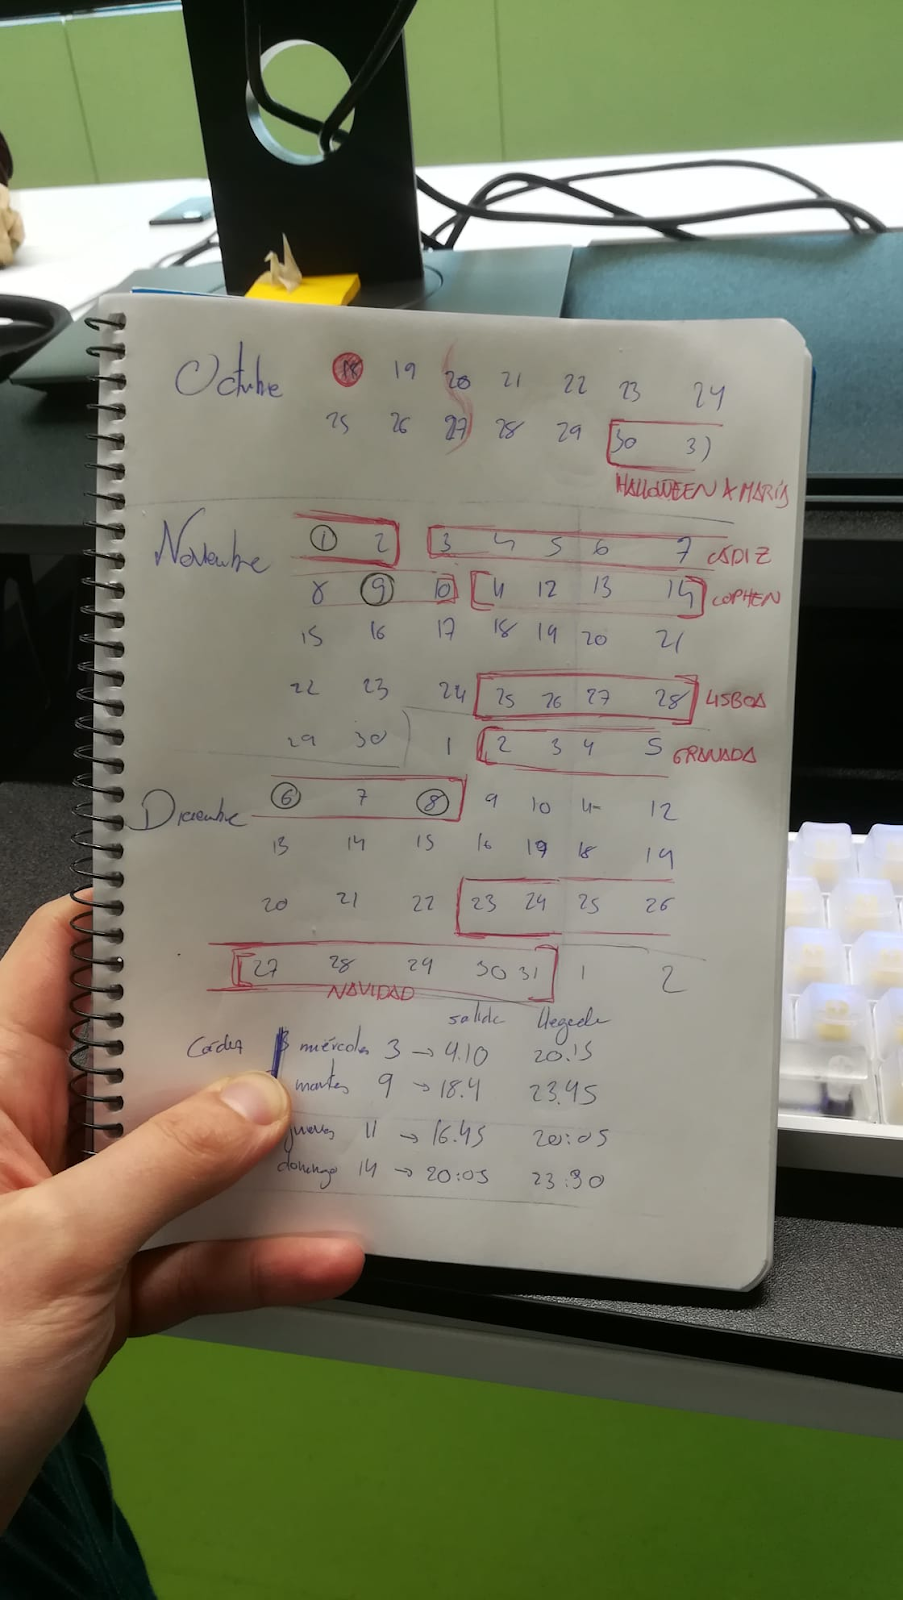 Octubre 18 19 20 21 22 23 24
25 26 27 28 29 30 31
HALLOWEEN A MARÍA
Noviembre 1 2 3 4 5 6 7 CÁDIZ
8 9 10 11 12 13 14 COPHEN
15 16 17 18 19 20 21
22 23 24 25 26 27 28 LISBOA
29 30 1 2 3 4 5 GRANADA
Diciembre 6 7 8 9 10 11 12
13 14 15 16 17 18 19
20 21 22 23 24 25 26
27 28 29 30 31 1 2
NAVIDAD
salida llegada
Cádiz miércoles 3 → 4.10 20.15
martes 9 → 18.4 23.45
jueves 11 → 16.45 20:05
domingo 14 → 20:05 23:30